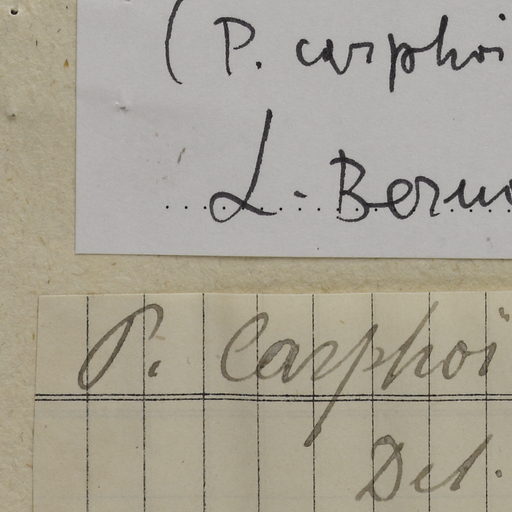 (P. carphoi
L. Bernо
P. Carphoï
Det.